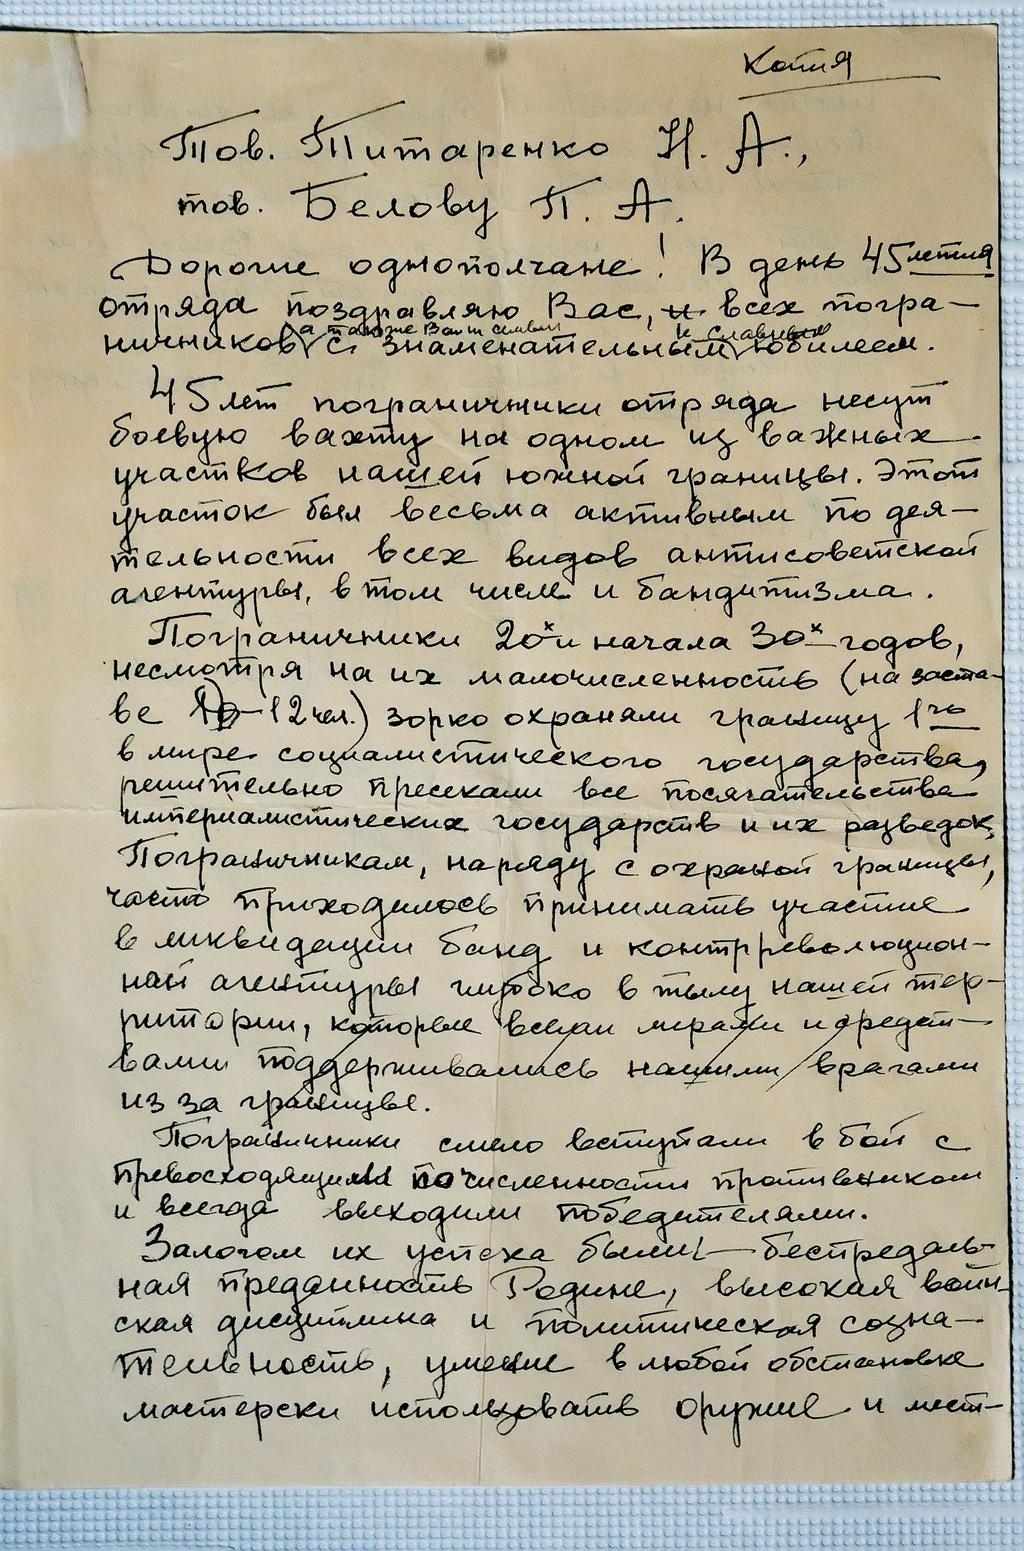 Копия
Тов. Титаренко Н. А.,
тов. Белову П. А.
Дорогие однополчане! В день 45летия
отряда поздравляю Вас, и всех погра-
а также Ваши семьи и славным
ничников с знаменательным юбилеем.
45 лет пограничники отряда несут
боевую вахту на одном из важных
участков нашей южной границы. Этот
участок был весьма активным по дея-
тельности всех видов антисоветской
агентуры, в том числе и бандитизма.
Пограничники 20х и начала 30х годов,
несмотря на их малочисленность (на заста-
ве 12 чел.) зорко охраняли границу 1го
в мире социалистического государства,
решительно пресекали все посягательства
империалистических государств и их разведок.
Пограничникам, наряду с охраной границы,
часто приходилось принимать участие
в ликвидации банд и контрреволюцион-
ной агентуры глубоко в тылу нашей тер-
ритории, которые всеми мерами и средст-
вами поддерживались нашими врагами
из за границы.
Пограничники смело вступали в бой с
превосходящим по численности противником
и всегда выходили победителями.
Залогом их успеха были — беспредель-
ная преданность Родине, высокая воин-
ская дисциплина и политическая созна-
тельность, умение в любой обстановке
мастерски использовать оружие и мест-